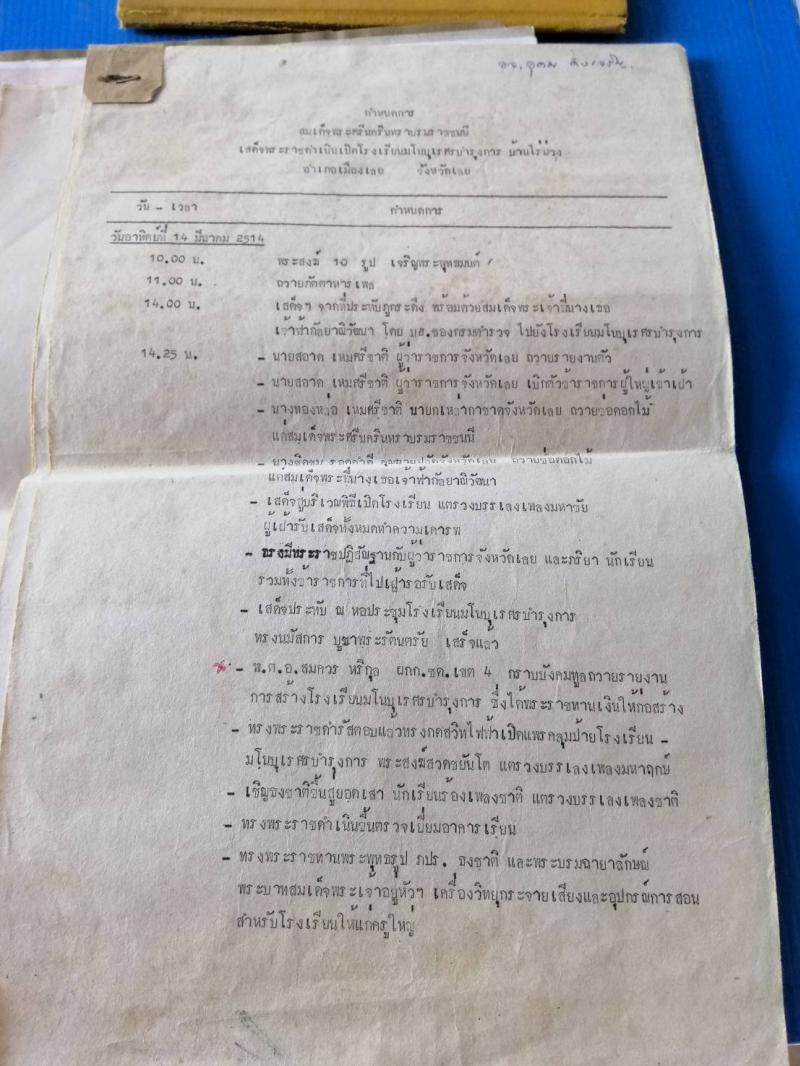 กำหนดการ
สมเด็จพระศรีนครินทราบรมราชชนนี
เสด็จพระราชดำเนินเปิดโรงเรียนมโนบุเรศรบำรุงการ บ้านไร่ม่วง
อำเภอเมืองเลย จังหวัดเลย
วัน - เวลา กำหนดการ
วันอาทิตย์ที่ 14 มีนาคม 2514
10.00 น. พระสงฆ์ 10 รูป เจริญพระพุทธมนต์
11.00 น. ถวายภัตตาหารเพล
14.00 น. เสด็จฯ จากที่ประทับภูกระดึง พร้อมด้วยสมเด็จพระเจ้าพี่นางเธอ
เจ้าฟ้ากัลยาณิวัฒนา โดย บฮ.ของกรมตำรวจ ไปยังโรงเรียนมโนบุเรศรบำรุงการ
14.25 น. - นายสอาด เหมศรีชาติ ผู้ว่าราชการจังหวัดเลย ถวายรายงานตัว
- นายสอาด เหมศรีชาติ ผู้ว่าราชการจังหวัดเลย เบิกตัวข้าราชการผู้ใหญ่เข้าเฝ้า
- นางทองหล่อ เหมศรีชาติ นายกเหล่ากาชาดจังหวัดเลย ถวายช่อดอกไม้
แก่สมเด็จพระศรีนครินทราบรมราชชนนี
ถวายช่อดอกไม้
แด่สมเด็จพระพี่นางเธอเจ้าฟ้ากัลยาณิวัฒนา
- เสด็จสู่บริเวณพิธีเปิดโรงเรียน แตรวงบรรเลงเพลงมหาชัย
ผู้เฝ้ารับเสด็จทั้งหมดทำความเคารพ
- ทรงมีพระราชปฏิสัณฐานกับผู้ว่าราชการจังหวัดเลย และภริยา นักเรียน
รวมทั้งข้าราชการที่ไปเฝ้ารอรับเสด็จ
- เสด็จประทับ ณ หอประชุมโรงเรียนมโนบุเรศรบำรุงการ
ทรงนมัสการ บูชาพระรัตนตรัย เสร็จแล้ว
- พ.ต.อ.สมควร หริกุล ผกก.ชด.เขต 4 กราบบังคมทูลถวายรายงาน
การสร้างโรงเรียนมโนบุเรศรบำรุงการ ซึ่งได้พระราชทานเงินให้ก่อสร้าง
- ทรงพระราชดำรัสตอบแล้วทรงกดสวิทไฟฟ้าเปิดแพรคลุมป้ายโรงเรียน -
มโนบุเรศรบำรุงการ พระสงฆ์สวดชยันโต แตรวงบรรเลงเพลงมหาฤกษ์
- เชิญธงชาติขึ้นสู่ยอดเสา นักเรียนร้องเพลงชาติ แตรวงบรรเลงเพลงชาติ
- ทรงพระราชดำเนินขึ้นตรวจเยี่ยมอาคารเรียน
- ทรงพระราชทานพระพุทธรูป ภปร. ธงชาติ และพระบรมฉายาลักษณ์
พระบาทสมเด็จพระเจ้าอยู่หัวฯ เครื่องวิทยุกระจายเสียงและอุปกรณ์การสอน
สำหรับโรงเรียนให้แก่ครูใหญ่